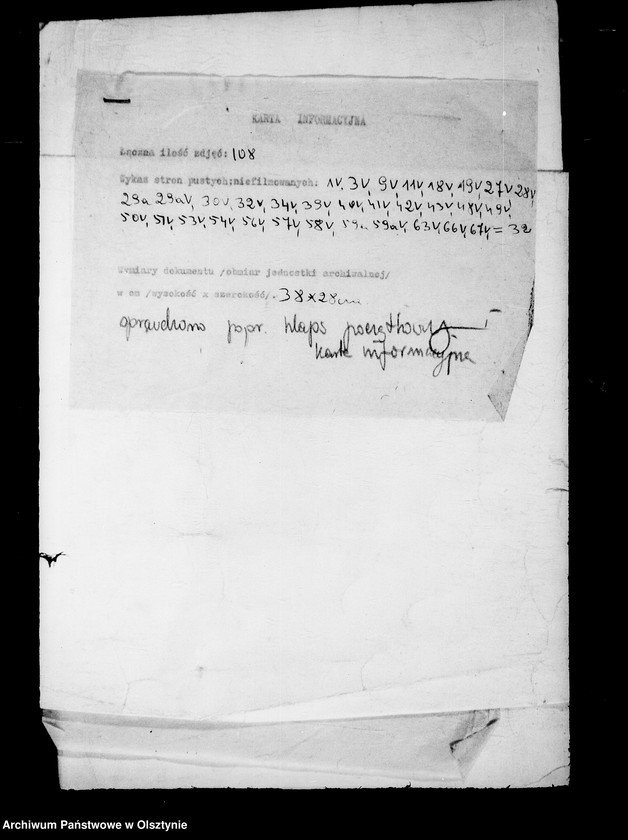 KARTA INFORMACYJNA
Łączna ilość zdjęć: 108
Wykas stron pustych:niefilmowanych: 1v, 3v, 9v, 11v, 18v, 19v, 27v, 28v,
29a 29av, 30v, 32v, 34v, 39v, 40v, 41v, 42v, 43v, 48v, 49v,
50v, 51v, 53v, 54v, 56v, 57v, 58v, 59a 59av, 63v, 66v, 67v, = 32
Wymiary dokumentu /obmiar jednostki archiwalnej/
w cm /wysokość x szerokość/. 38x28cm
sprawdzono popr. klaps początkowy
karta informacyjna
Archiwum Państwowe w Olsztynie